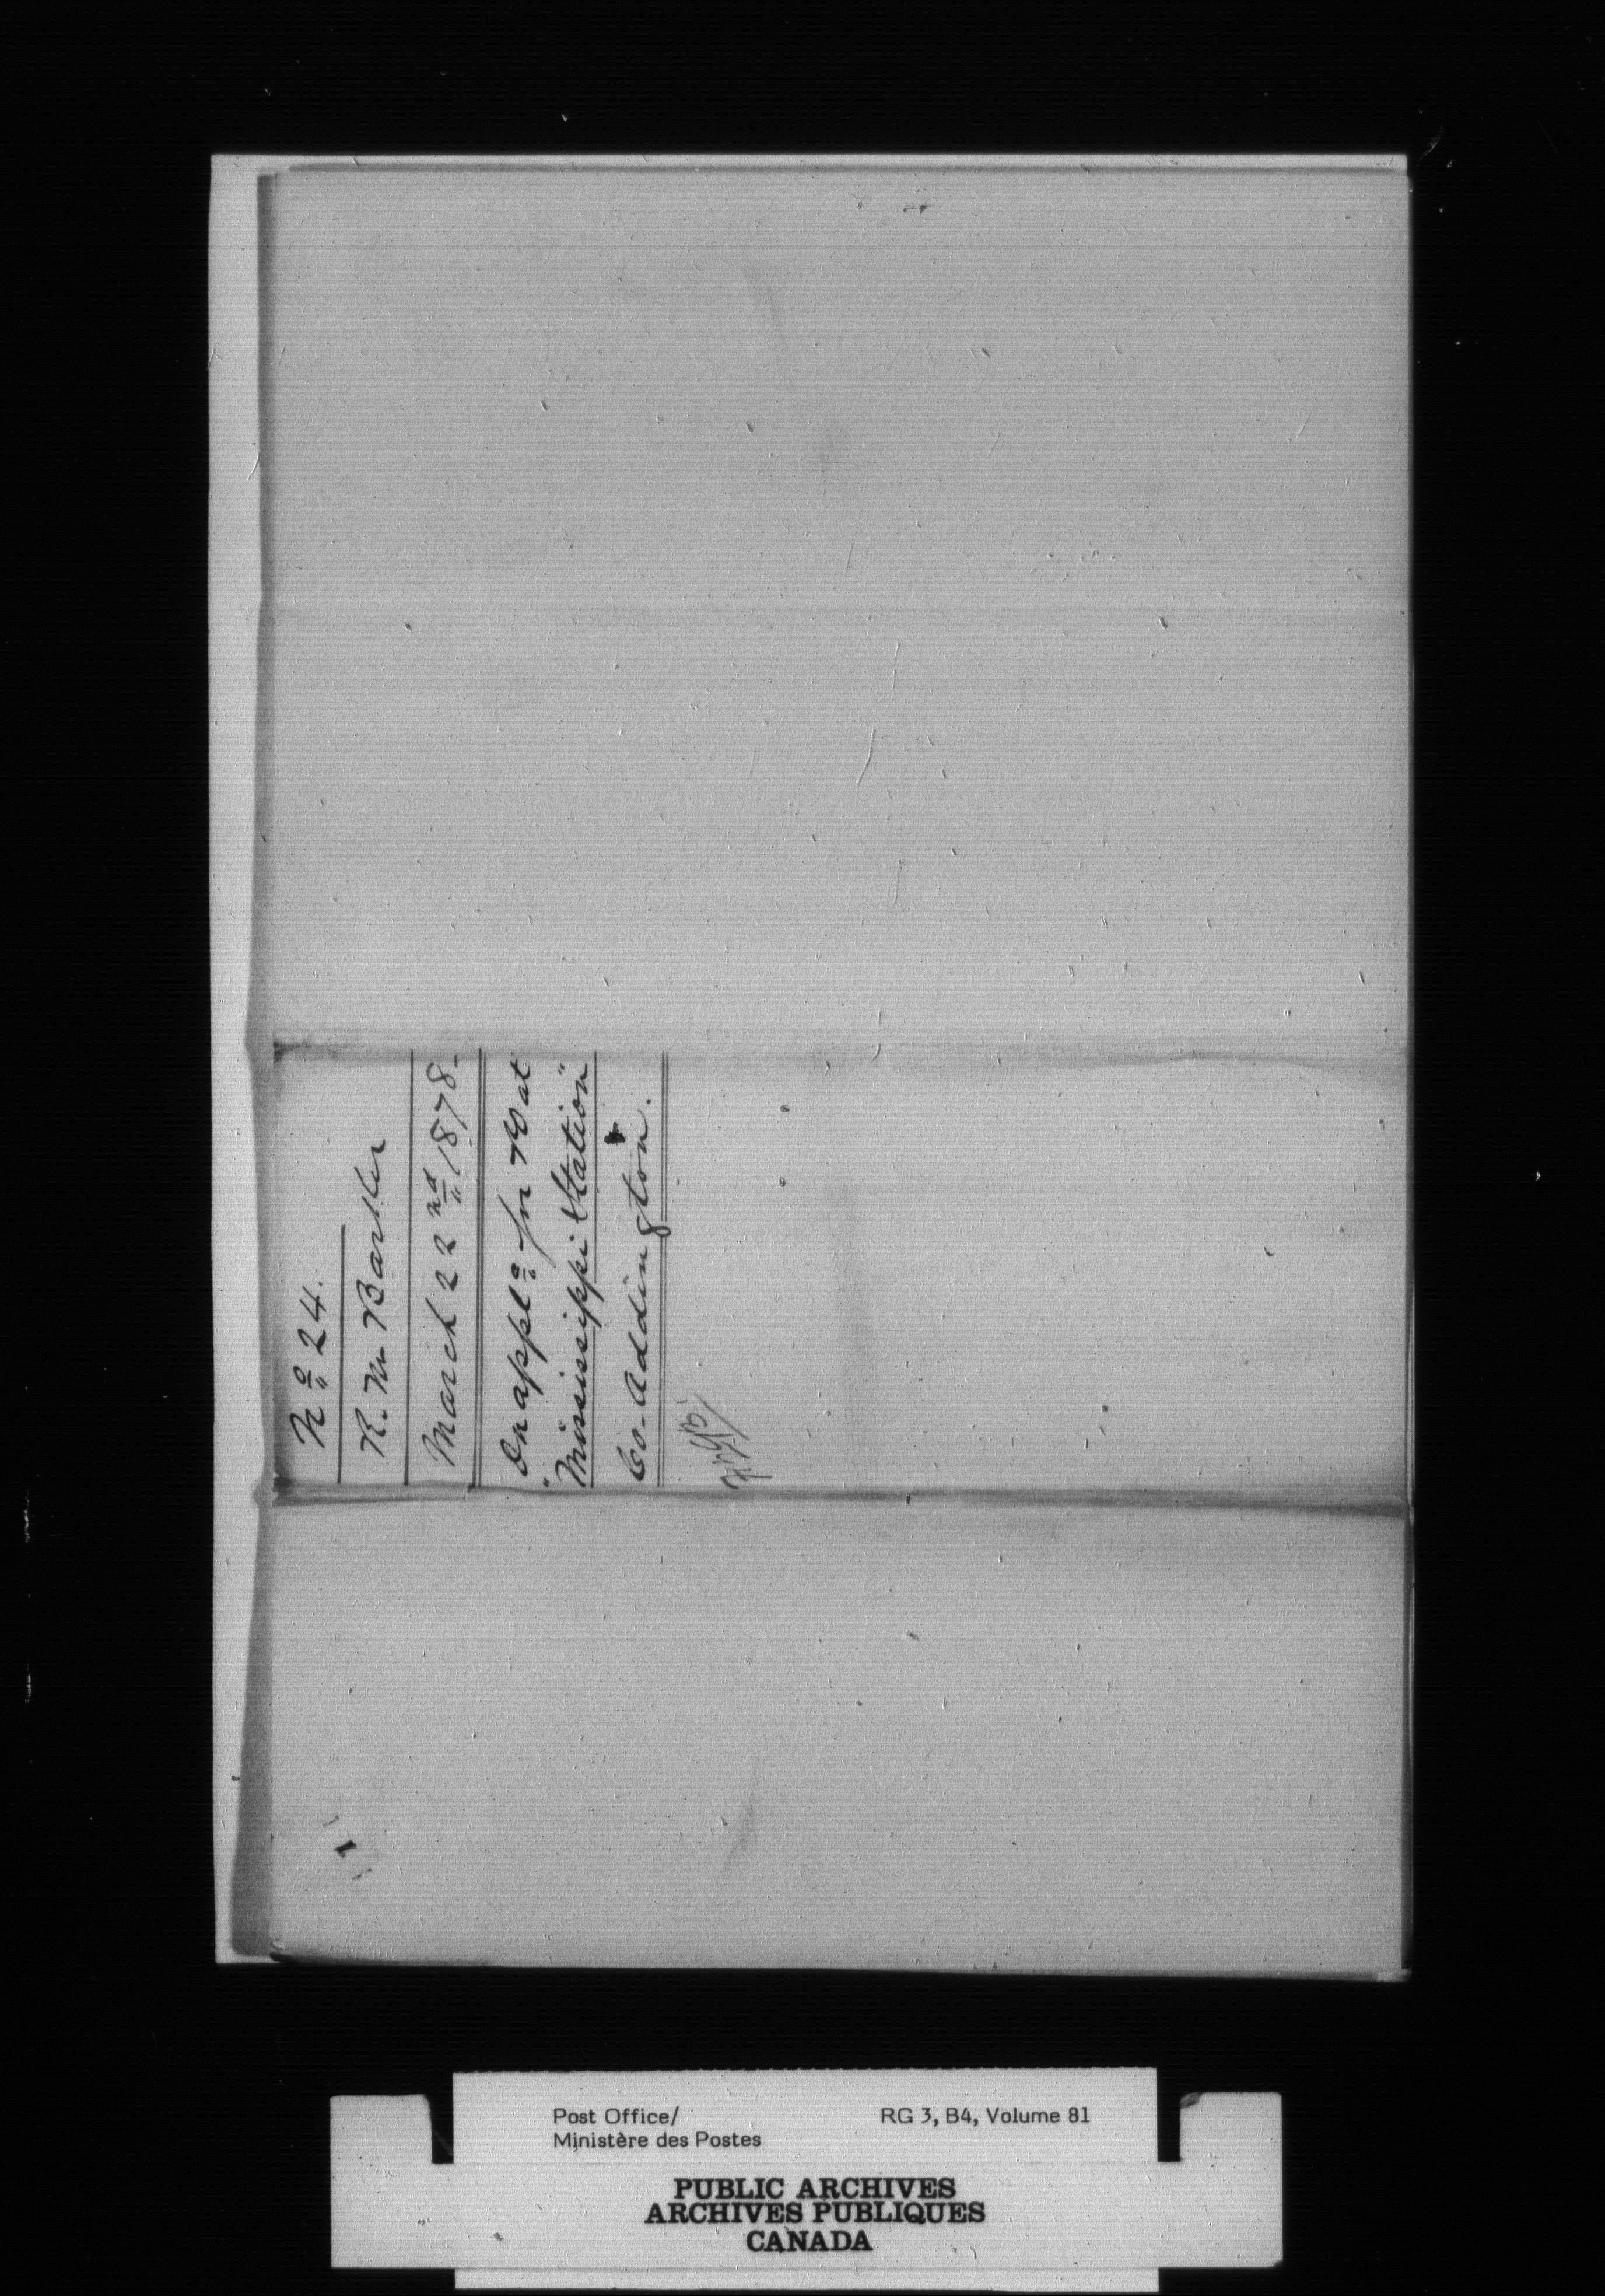 No 24.
R. W. Barker
March 22nd 1878.
On applo for PO at
"Mississippi Station"
Co. Addington.
Post Office/
Ministère des Postes
RG 3, B4, Volume 81
PUBLIC ARCHIVES
ARCHIVES PUBLIQUES
CANADA